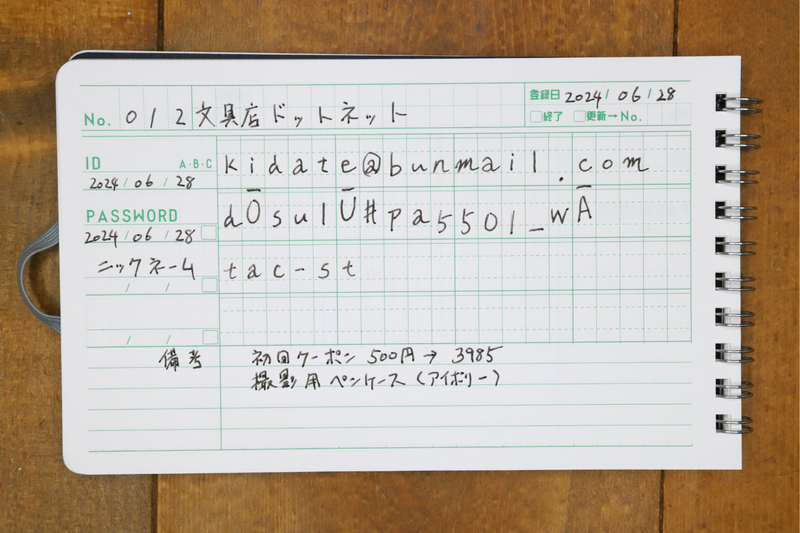 No. 012 文具店ドットネット 登録日 2024/06/28
□終了 □更新→No.
ID A・B・C kidate@bunmail.com
2024/06/28
PASSWORD dOsulU#pa5501_wA
2024/06/28
ニックネーム tac-st
/ /
/ /
備考 初回クーポン 500円→ 3985
撮影用ペンケース(アイボリー)